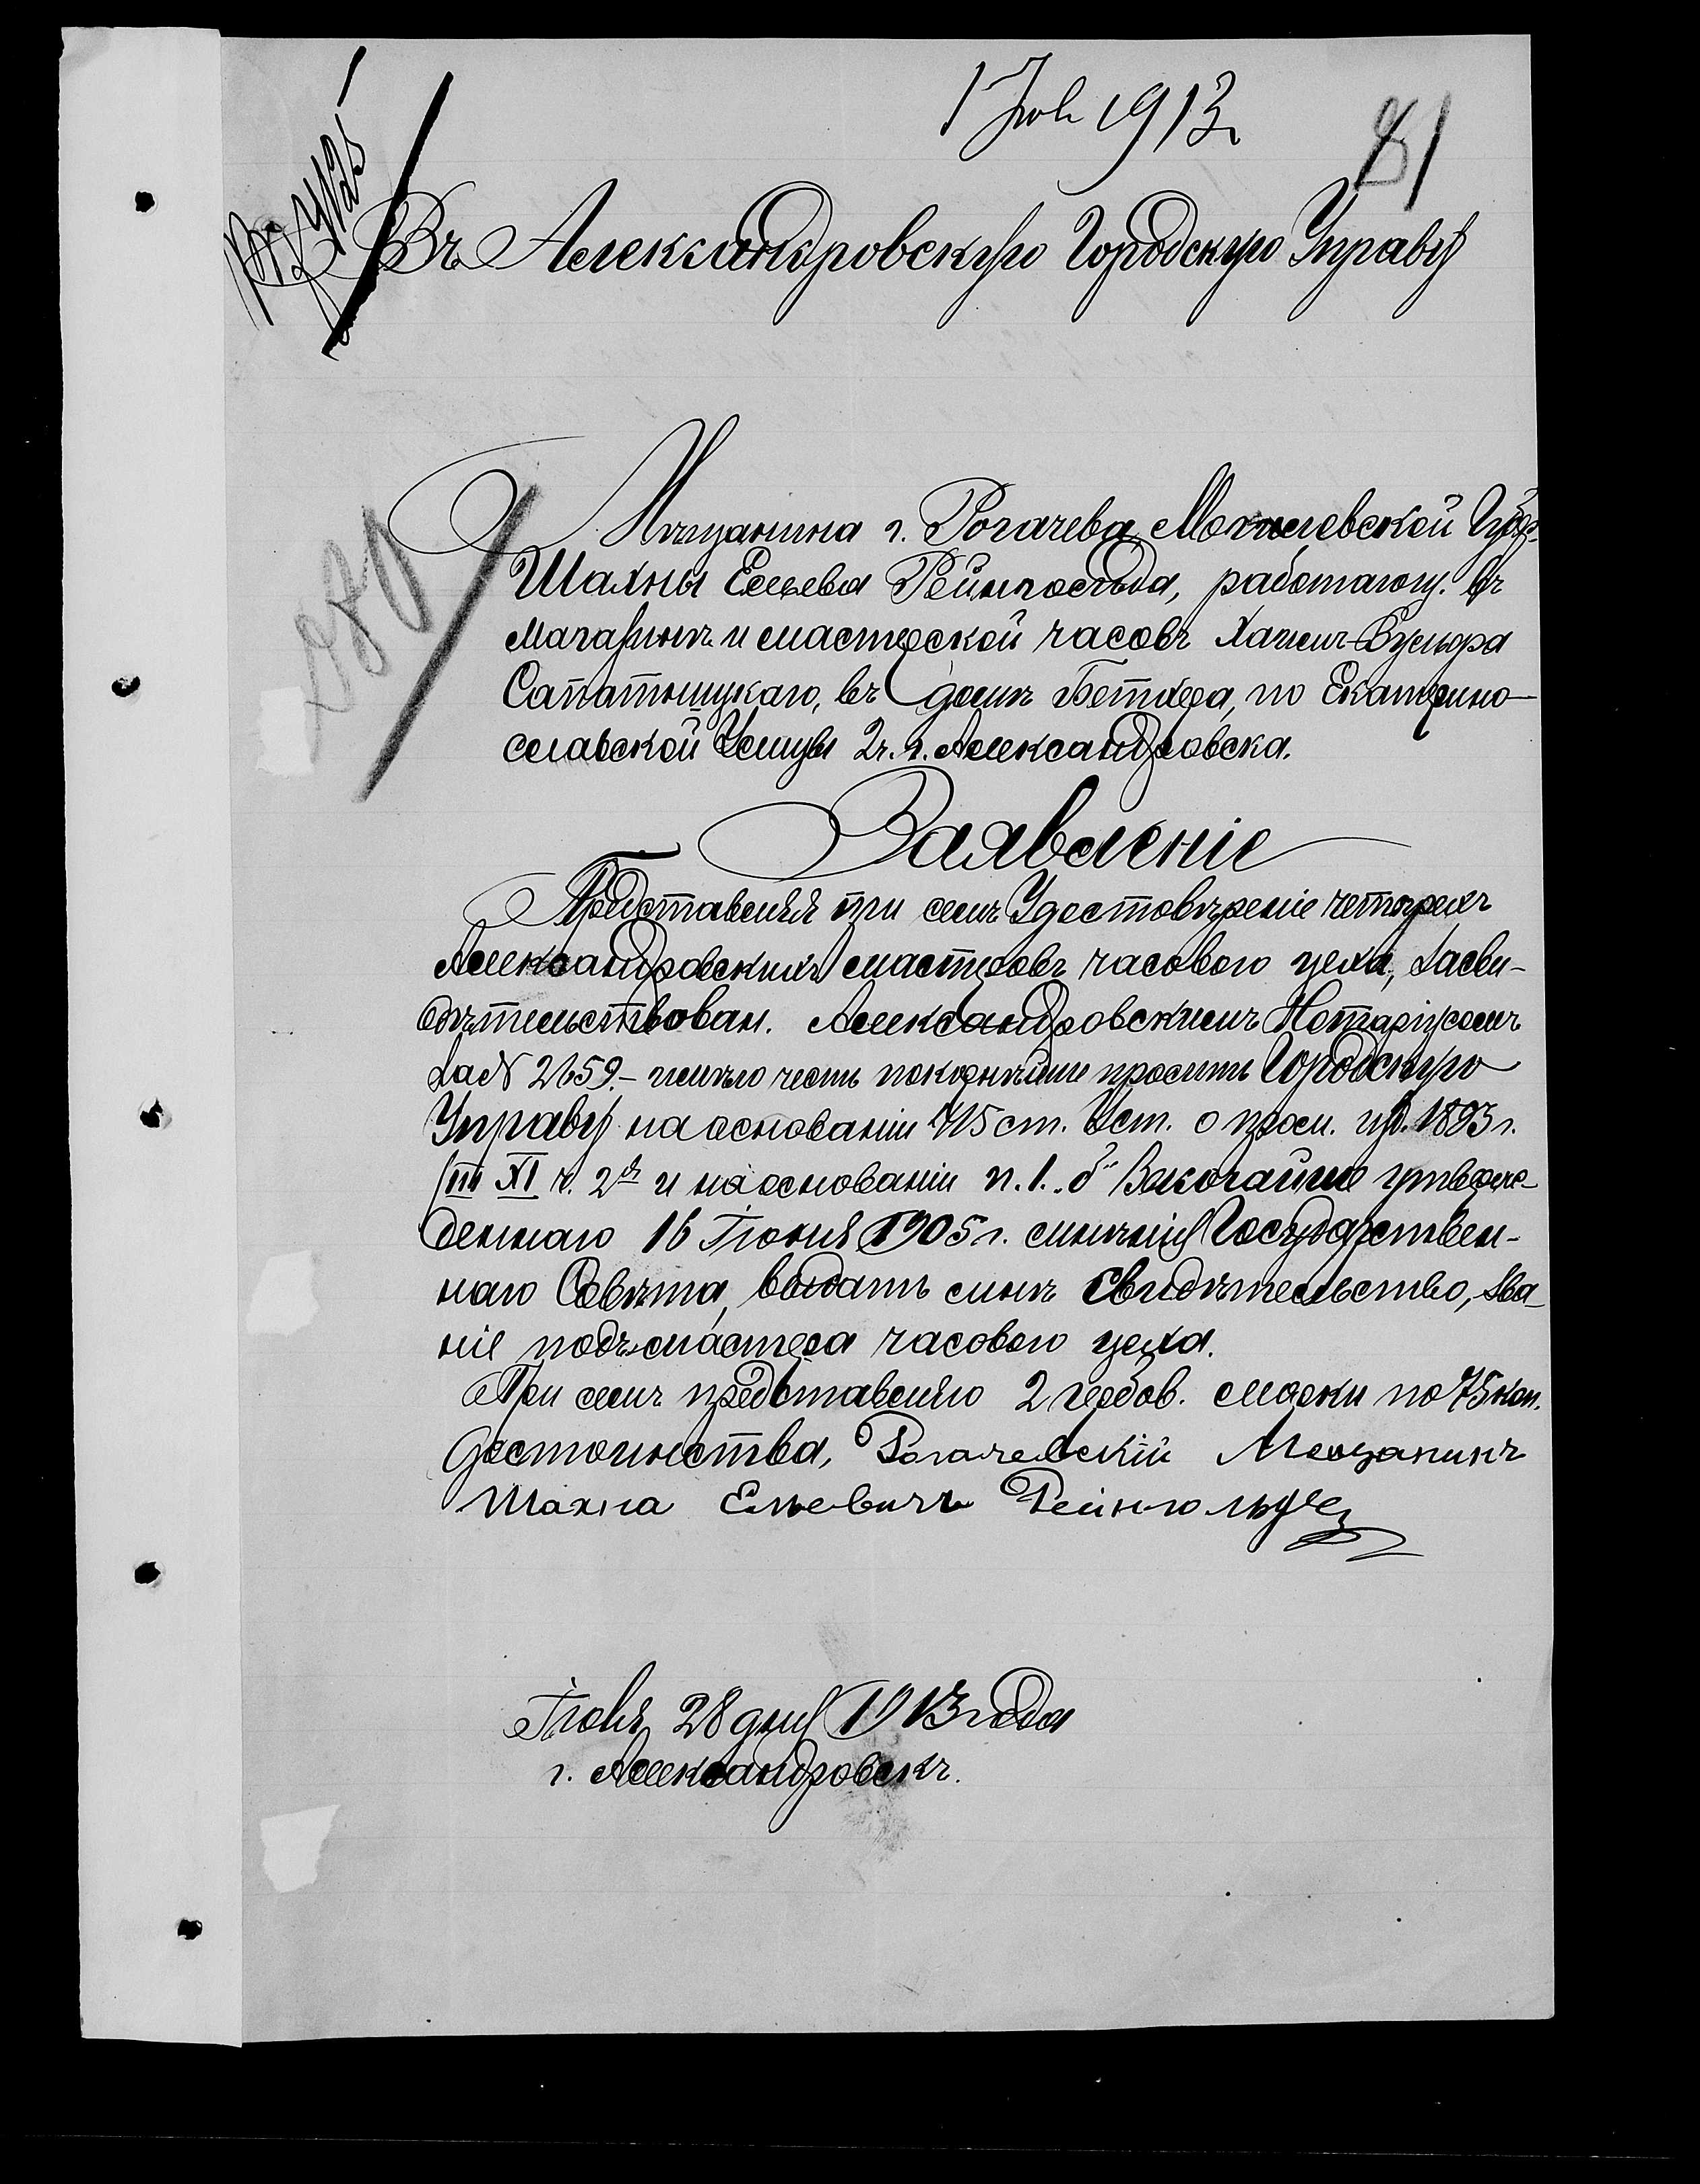 1 Іюль 1913 г
81
Въ Александровскую Городскую Управу
Мѣщанина г. Рогачева, Могилевской Губер.
Шахны Ельева Рейнгольда, работающ. въ
магазинѣ и мастерской часовъ Хаимъ-Вульфа
Сапатницкаго, въ домѣ Бетхера, по Екатерино-
славской Улицѣ 2ч. г. Александровска.
Заявленіе
Представляя при семъ Удостовѣреніе четырехъ
Александровскихъ мастеровъ часового цеха, засви-
дѣтельствован. Александровскимъ Нотаріусомъ
за № 2659.- имѣю честь покорнѣйше просить Городскую
Управу на основаніи 415 ст. Уст. о пром. изд. 1893 г.
/т XI ч. 2й и на основаніи п. 1. б" Высочайше утверж-
деннаго 16 Іюня 1905 г. мнѣнія Государствен-
наго Совѣта, выдать мнѣ Свидѣтельство, зва-
ніе подъмастера часового цеха.
При семъ представляю 2 гербов. марки по 75 коп.
достоинства, Рогачевскій Мещанинъ
Шахна Ельевичъ Рейнгольдъ
Іюня 28 дня 1913 года
г. Александровскъ.